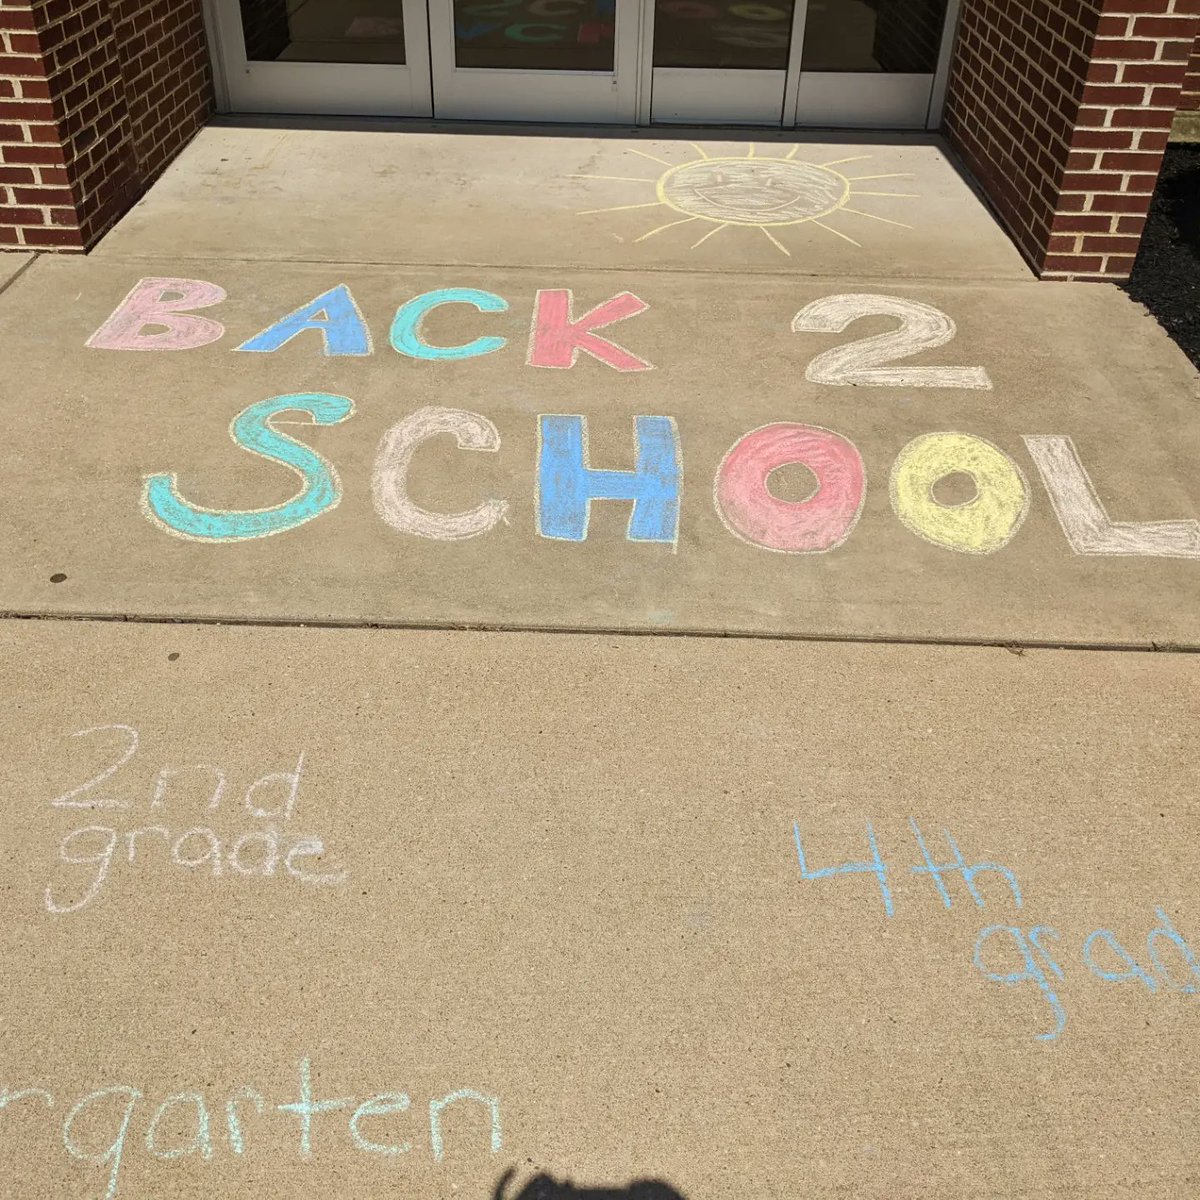 BACK 2
SCHOOL
2nd
grade
4th
grad
rgarten